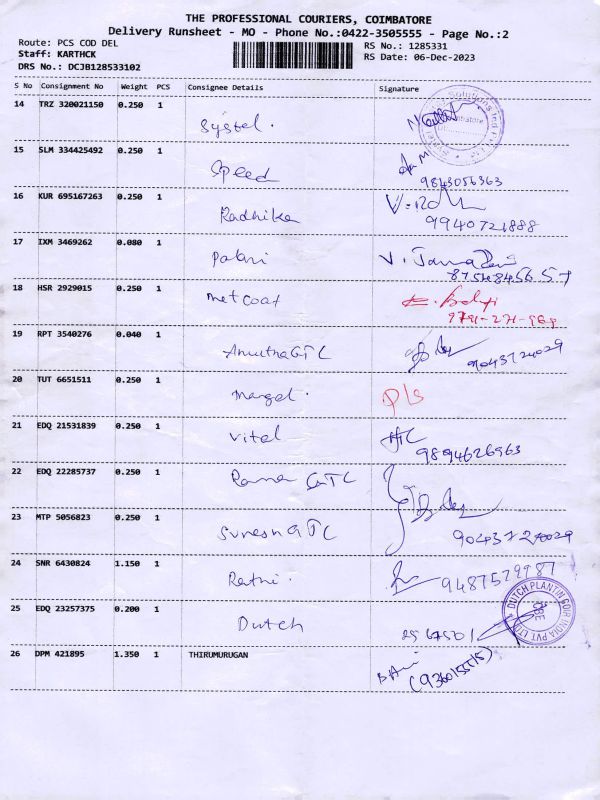 THE PROFESSIONAL COURIERS, COIMBATORE
Delivery Runsheet - MO - Phone No.:0422-3505555 - Page No.:2
Route: PCS COD DEL
Staff: KARTHCK
DRS No.: DCJB128533102
RS No.: 1285331
RS Date: 06-Dec-2023
S No Consignment No Weight PCS Consignee Details Signature
14 TRZ 320021150 0.250 1 Systel.
15 SLM 334425492 0.250 1 Speed
9843056363
16 KUR 695167263 0.250 1 Radhika
9940721888
17 IXM 3469262 0.080 1 Palani
8754845657
18 HSR 2929015 0.250 1 Metcoat
19 RPT 3540276 0.040 1 Amutha GTC
9043724029
20 TUT 6651511 0.250 1 P/S
21 EDQ 21531839 0.250 1 Vital
9894626963
22 EDQ 22285737 0.250 1 Rama GTC
23 MTP 5056823 0.250 1 Suresh GTC
9043724029
24 SNR 6430824 1.150 1 Rathi.
9487529987
25 EDQ 23257375 0.200 1 Dutch
DUTCH PLANTIN COIR INDIA PVT LTD
CBE
26 DPM 421895 1.350 1 THIRUMURUGAN